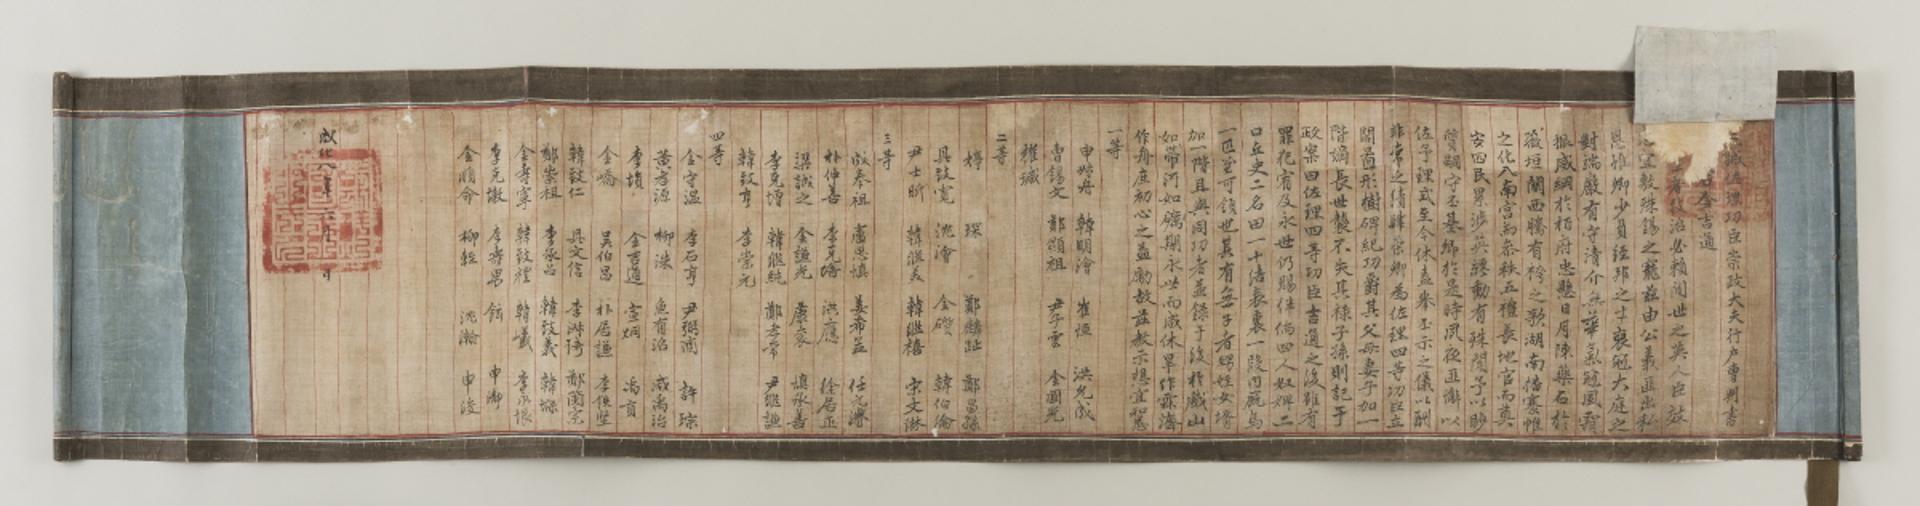 佐理功臣崇政大夫行戶曹判書
金吉通
治必賴間世之英人臣
敦殊錫之寵茲由公義匪出私
恩惟卿少負經邦之寸裒冠大庭之
對端嚴有守清介無華氣冠風霜
振威綱於栢府忠懸日月陳藥石於
薇垣關西騰有袴之歌湖南播褰帷
之化八南宮而秩五禮長地官而奠
安四民累涉英躔動有殊聞予以眇
質嗣守丕基卿於是時夙夜匪懈以
佐予理式至今休盍擧丕示之儀以酬
非常之績肆策卿為佐理四等功臣立
閣圖形樹碑紀功爵其父母妻子加一
階嫡長世襲不失其祿子孫則記于
政案曰佐理四等功臣吉通之後雖有
罪犯宥及永世仍賜伴倘四人奴婢二
口丘史二名田一十結表裏一段內廐馬
一匹至可領也其有無子者甥姪女壻
加一階且與同功者並錄于後於戲山
如帶河如礪期永世而咸休旱作霖濟
作舟庶初心之益勵故茲敎示想宜知悉
一等
申叔舟 韓明澮 崔恒 洪允成
曹錫文 鄭顯祖 尹子雲 金國光
權瑊
二等
婷 琛 鄭麟趾 鄭昌孫
沈澮 金礩 韓伯倫
尹士昕 韓繼美 韓繼禧 宋文琳
三等
成奉祖 盧思愼 姜希孟 任元濬
朴仲善 李克培 洪應 徐居正
梁誠之 金謙光 康袞 愼承善
李克增 韓繼純 鄭孝常 尹繼謙
韓致亨 李崇元
四等
金守溫 李石亨 尹弼商 許琮
黃孝源 柳洙 魚有沼 咸禹治
李塤 金吉通 宣炯 禹貢
金嶠 吳伯昌 朴居謙 李鐵堅
韓致仁 具文信 李淑琦 鄭蘭宗
鄭崇祖 李承召 韓致義 韓堡
金孝寧 韓致禮 韓㬢 李克墩
李壽男 申瀞
金順命 柳輊 沈瀚 申浚
成化八年六月 日